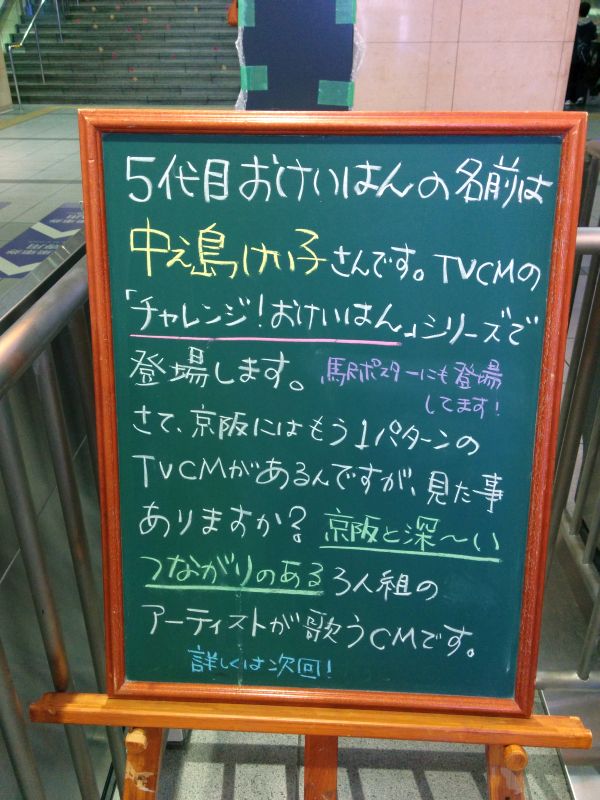 5代目おけいはんの名前は
中之島けい子さんです。TVCMの
「チャレンジ!おけいはん」シリーズで
登場します。駅ポスターにも登場
してます!
さて、京阪にはもう1パターンの
TVCMがあるんですが、見た事
ありますか?京阪と深〜い
つながりのある3人組の
アーティストが歌うCMです。
詳しくは次回!